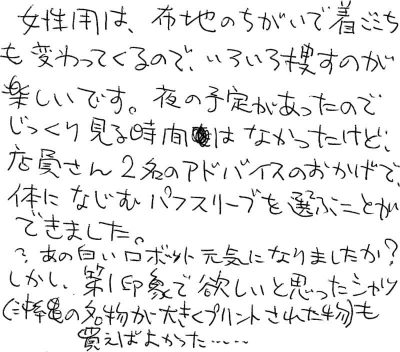 女性用は、布地のちがいで着ごこち
も変わってくるので、いろいろ捜すのが
楽しいです。夜の予定があったので
じっくり見る時間はなかったけど、
店員さん2名のアドバイスのおかげで、
体になじむパフスリーブを選ぶことが
できました。
?あの白いロボット元気になりましたか?
しかし、第1印象で欲しいと思ったシャツ
(の名物が大きくプリントされた物)も
買えばよかった……